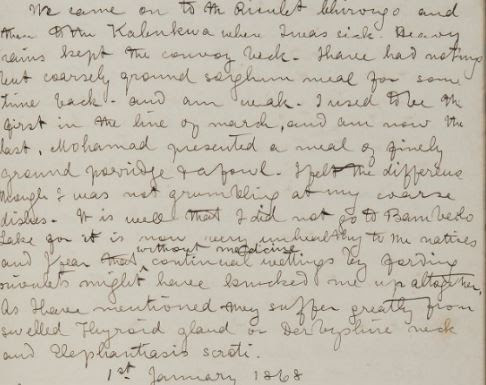 We came on to the Rivulet Chirongo and
then to the Kabukwa where I was sick. Heavy
rains kept the convoy back. I have had nothing
but coarsely ground sorghum meal for some
time back - and am weak. I used to be the
first in the line of march, and am now the
last. Mohamad presented a meal of finely
ground porridge & a fowl. I felt the difference
though I was not grumbling at my coarse
dishes. It is well that I did not go to Bambarre
Lake for it is now very unhealthy to the natives
and I fear that without medicine continual wettings by fording
rivulets might have knocked me up altogether.
As I have mentioned they suffer greatly from
swelled Thyroid gland or Derbyshire neck
and Elephantiasis scroti.
1st January 1868